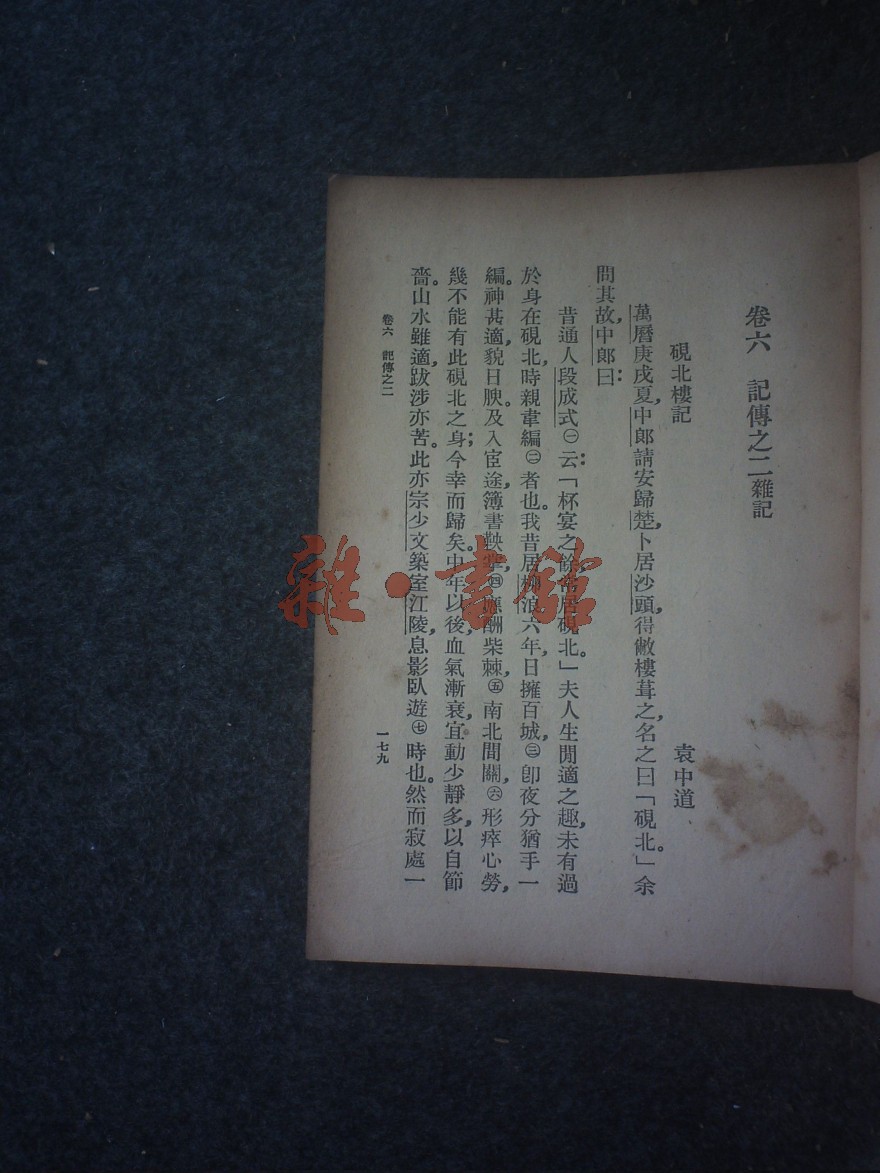 卷六　記傳之二雜記
硯北樓記
袁中道
萬曆庚戌夏，中郎請安歸楚，卜居沙頭，得敝樓葺之，名之曰「硯北。」余
問其故，中郎曰：
昔通人段成式㊀云：「杯宴之餘，常居硯北。」夫人生閒適之趣，未有過
於身在硯北，時親韋編㊁者也。我昔居柳浪六年，日擁百城，㊂卽夜分猶手一
編。神甚適，貌日腴。及入宦途，簿書鞅掌，㊃應酬柴棘，㊄南北間關，㊅形瘁心勞，
幾不能有此硯北之身；今幸而歸矣。中年以後，血氣漸衰，宜動少靜多，以自節
嗇。山水雖適，跋涉亦苦。此亦宗少文築室江陵，息影臥遊㊆時也。然而寂處一
卷六　記傳之二
一七九
雜·書館